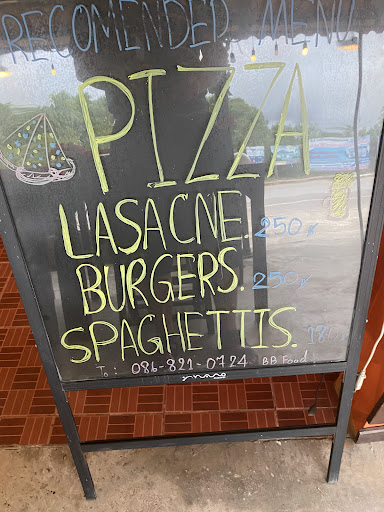 RECOMENDED MENU
PIZZA
LASACNE. 250
BURGERS. 250
SPAGHETTIS. 18
To: 086-821-0724 BB Food